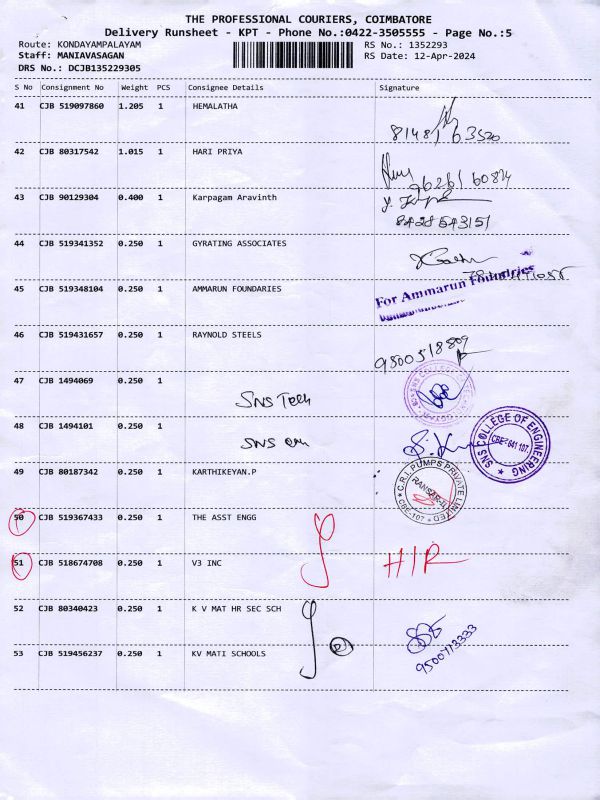 THE PROFESSIONAL COURIERS, COIMBATORE
Delivery Runsheet - KPT - Phone No.:0422-3505555 - Page No.:5
Route: KONDAYAMPALAYAM RS No.: 1352293
Staff: MANIAVASAGAN RS Date: 12-Apr-2024
DRS No.: DCJB135229305
S No Consignment No Weight PCS Consignee Details Signature
41 CJB 519097860 1.205 1 HEMALATHA
81481 63520
42 CJB 80317542 1.015 1 HARI PRIYA
76261 60874
43 CJB 90129304 0.400 1 Karpagam Aravinth
8428543151
44 CJB 519341352 0.250 1 GYRATING ASSOCIATES
45 CJB 519348104 0.250 1 AMMARUN FOUNDARIES
For Ammarun Foundries
46 CJB 519431657 0.250 1 RAYNOLD STEELS
9500518809
47 CJB 1494069 0.250 1
SNS Tech
48 CJB 1494101 0.250 1
SNS
SNS COLLEGE OF ENGINEERING
CBE-641 107.
49 CJB 80187342 0.250 1 KARTHIKEYAN.P
C.R.I. PUMPS PRIVATE LIMITED
CBE-107
50 CJB 519367433 0.250 1 THE ASST ENGG
51 CJB 518674708 0.250 1 V3 INC
H/R
52 CJB 80340423 0.250 1 K V MAT HR SEC SCH
9500713333
53 CJB 519456237 0.250 1 KV MATI SCHOOLS